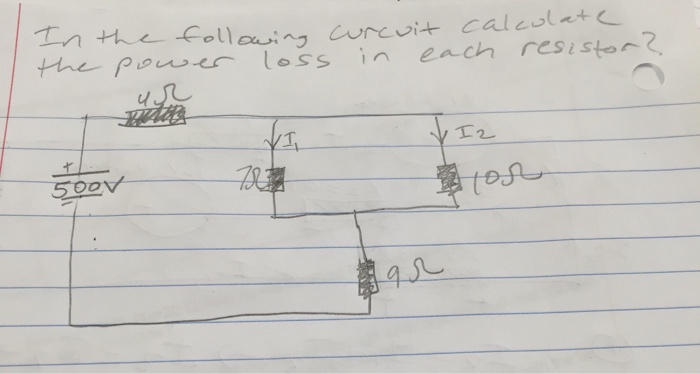 In the following curcuit calculate
the power loss in each resistor?
4Ω
I1
I2
+
500V
7Ω
10Ω
9Ω